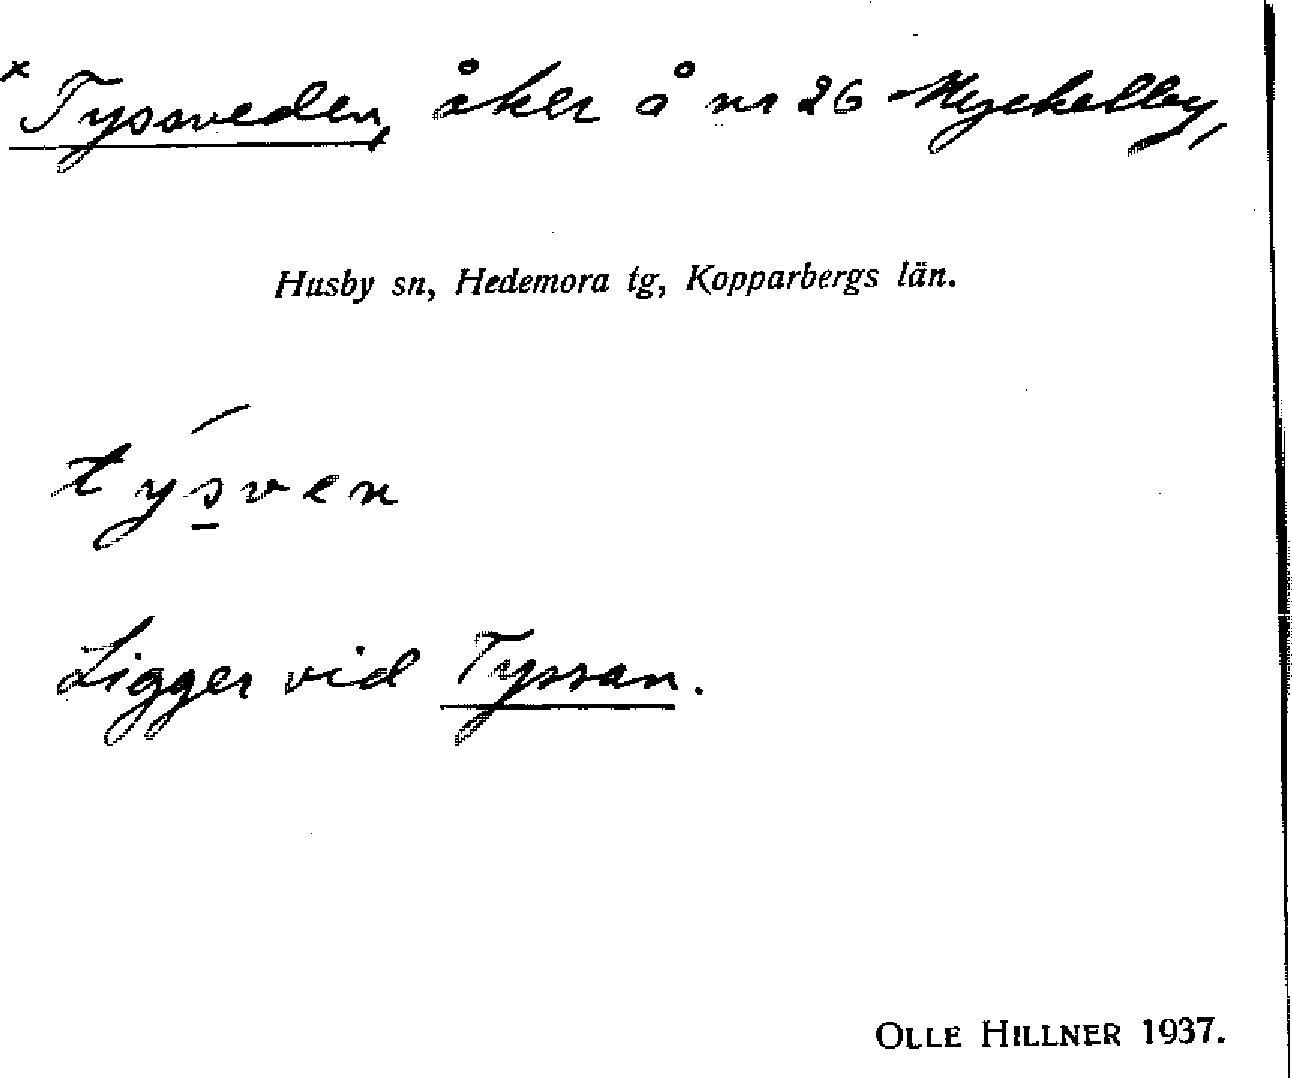 x Tyssveden, åker å nr 26 Myckelby,
Husby sn, Hedemora tg, Kopparbergs län.
tysven
Ligger vid Tyssan.
OLLE HILLNER 1937.